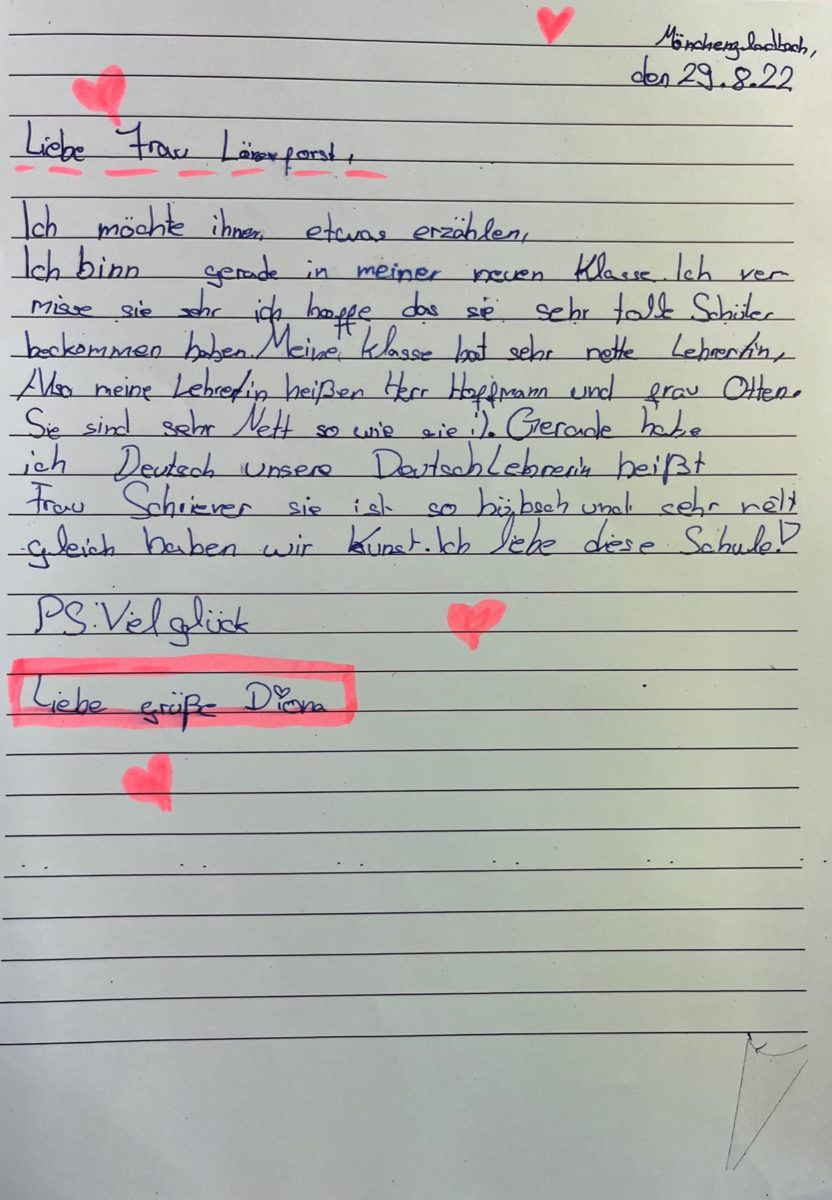 Mönchengladbach,
den 29.8.22
Liebe Frau
Ich möchte ihnen etwas erzählen,
Ich binn gerade in meiner neuen Klasse. Ich ver
misse sie sehr ich hoffe das sie sehr tolle Schüler
beckommen haben. Meine Klasse hat sehr nette Lehrer/in,
Also meine Lehrer/in heißen Herr Hoffmann und frau Otten.
Sie sind sehr Nett so wie sie :). Gerade habe
ich Deutsch unsere Deutschlehrerin heißt
Frau Schriever sie ist so hübsch und sehr nett
gleich haben wir Kunst. Ich liebe diese Schule!
PS: Viel glück
Liebe grüße Diana